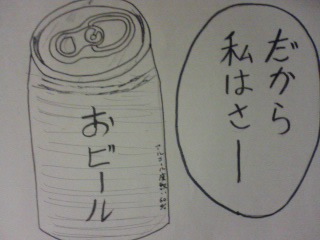 だから
私はさー
おビール